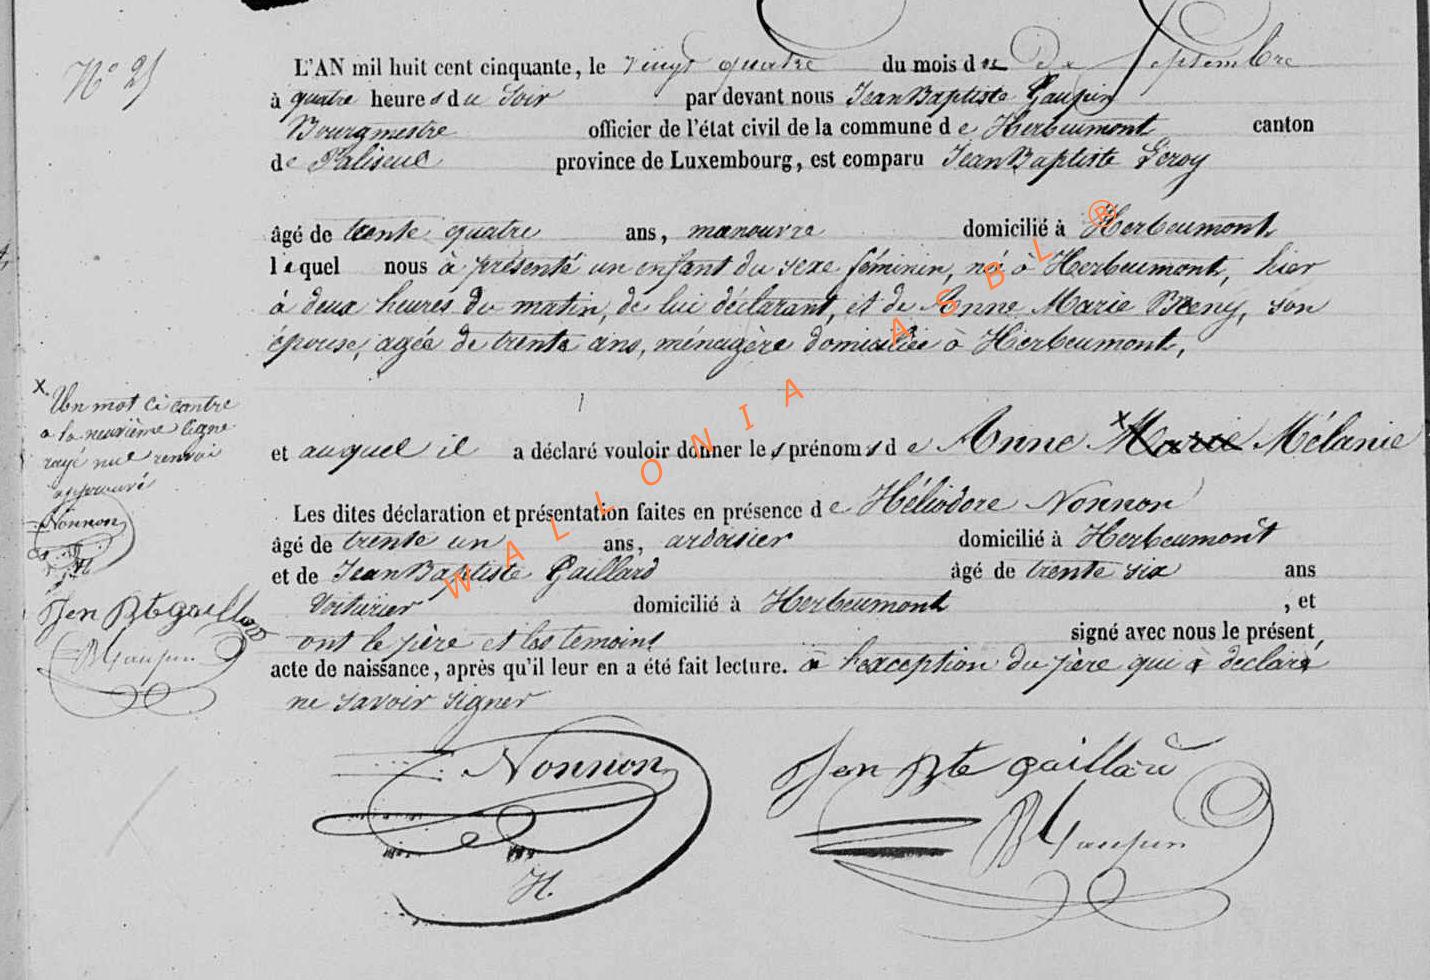 N° 25
L'AN mil huit cent cinquante, le vingt quatre du mois de Septembre
à quatre heures du soir par devant nous Jean Baptiste Gaupin
Bourgmestre officier de l'état civil de la commune de Herbeumont canton
de Paliseul province de Luxembourg, est comparu Jean Baptiste Leroy
âgé de trente quatre ans, manouvre domicilié à Herbeumont
lequel nous à présenté un enfant du sexe féminin, né à Herbeumont, hier
à deux heures du matin, de lui déclarant, et de Anne Marie Reny, son
épouse, agée de trente ans, ménagère domiciliée à Herbeumont,
et auquel il a déclaré vouloir donner les prénoms de Anne x Marie Mélanie
Les dites déclaration et présentation faites en présence de Héliodore Nonnon
âgé de trente un ans, ardoisier domicilié à Herbeumont
et de Jean Baptiste Gaillard âgé de trente six ans
Voiturier domicilié à Herbeumont, et
ont le père et les temoins signé avec nous le présent
acte de naissance, après qu'il leur en a été fait lecture. à l'exception du père qui a declaré
ne savoir signer
x Un mot ci contre
a la neuvième ligne
rayé nul renvoi
approuvé
Nonnon
H
Jen Bte gaillard
B Gaupin
Nonnon
H.
Jen Bte gaillard
B Gaupin
WALLONIA ASBL ®